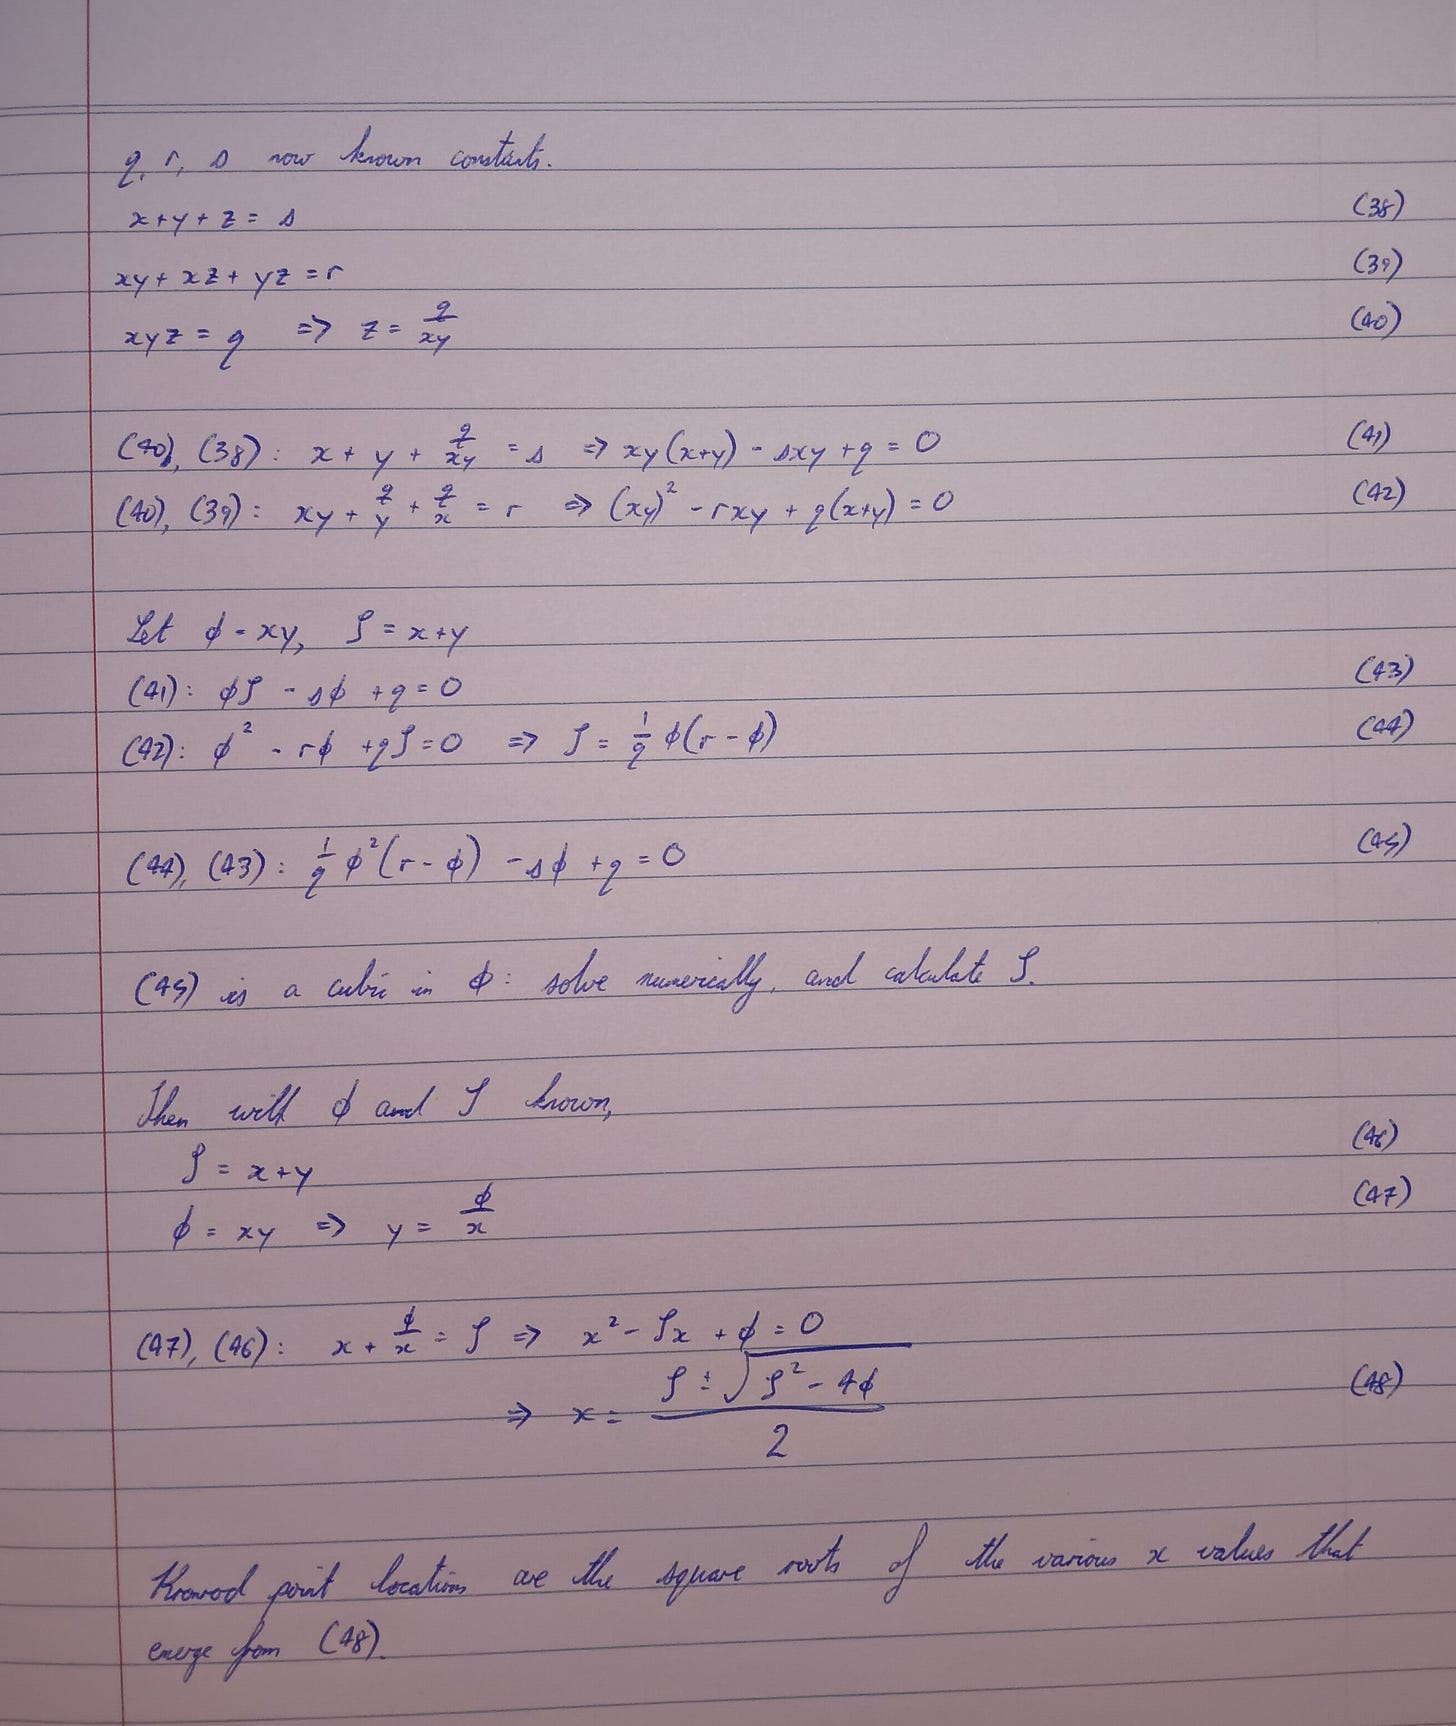 q, r, s now known constants.
x+y+z = s (38)
xy + xz + yz = r (39)
xyz = q ⇒ z = q/xy (40)
(40), (38): x + y + q/xy = s ⇒ xy(x+y) - sxy + q = 0 (41)
(40), (39): xy + q/y + q/x = r ⇒ (xy)² - rxy + q(x+y) = 0 (42)
Let ϕ = xy, ζ = x+y
(41): ϕζ - sϕ + q = 0 (43)
(42): ϕ² - rϕ + qζ = 0 ⇒ ζ = 1/q ϕ(r - ϕ) (44)
(44), (43): 1/q ϕ²(r - ϕ) - sϕ + q = 0 (45)
(45) is a cubic in ϕ: solve numerically, and calculate ζ.
Then with ϕ and ζ known,
ζ = x+y (46)
ϕ = xy ⇒ y = ϕ/x (47)
(47), (46): x + ϕ/x = ζ ⇒ x² - ζx + ϕ = 0
⇒ x = (ζ ± √(ζ² - 4ϕ))/2 (48)
Kronrod point locations are the square roots of the various x values that
emerge from (48).